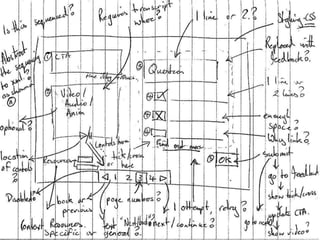 Is this sequenced?
Requires transcript where?
1 line or 2?
Styling - CSS
Abstract
the sequence
to not be
① CTA
② Question
Replaced with feedback?
1 line or 2 lines?
② Video/
Audio/
Anim
optional?
enough space?
Long links?
Controls here or here
tick/cross
Find out more
⑤ OK
submit
location of controls?
Resources
1 2 3 4
go to feedback
show tick/cross
update CTA.
show video?
Disabled?
back or previous
page numbers?
1 attempt, retry?
go to next
Context Resources. Specific or general?
text
next / continue?